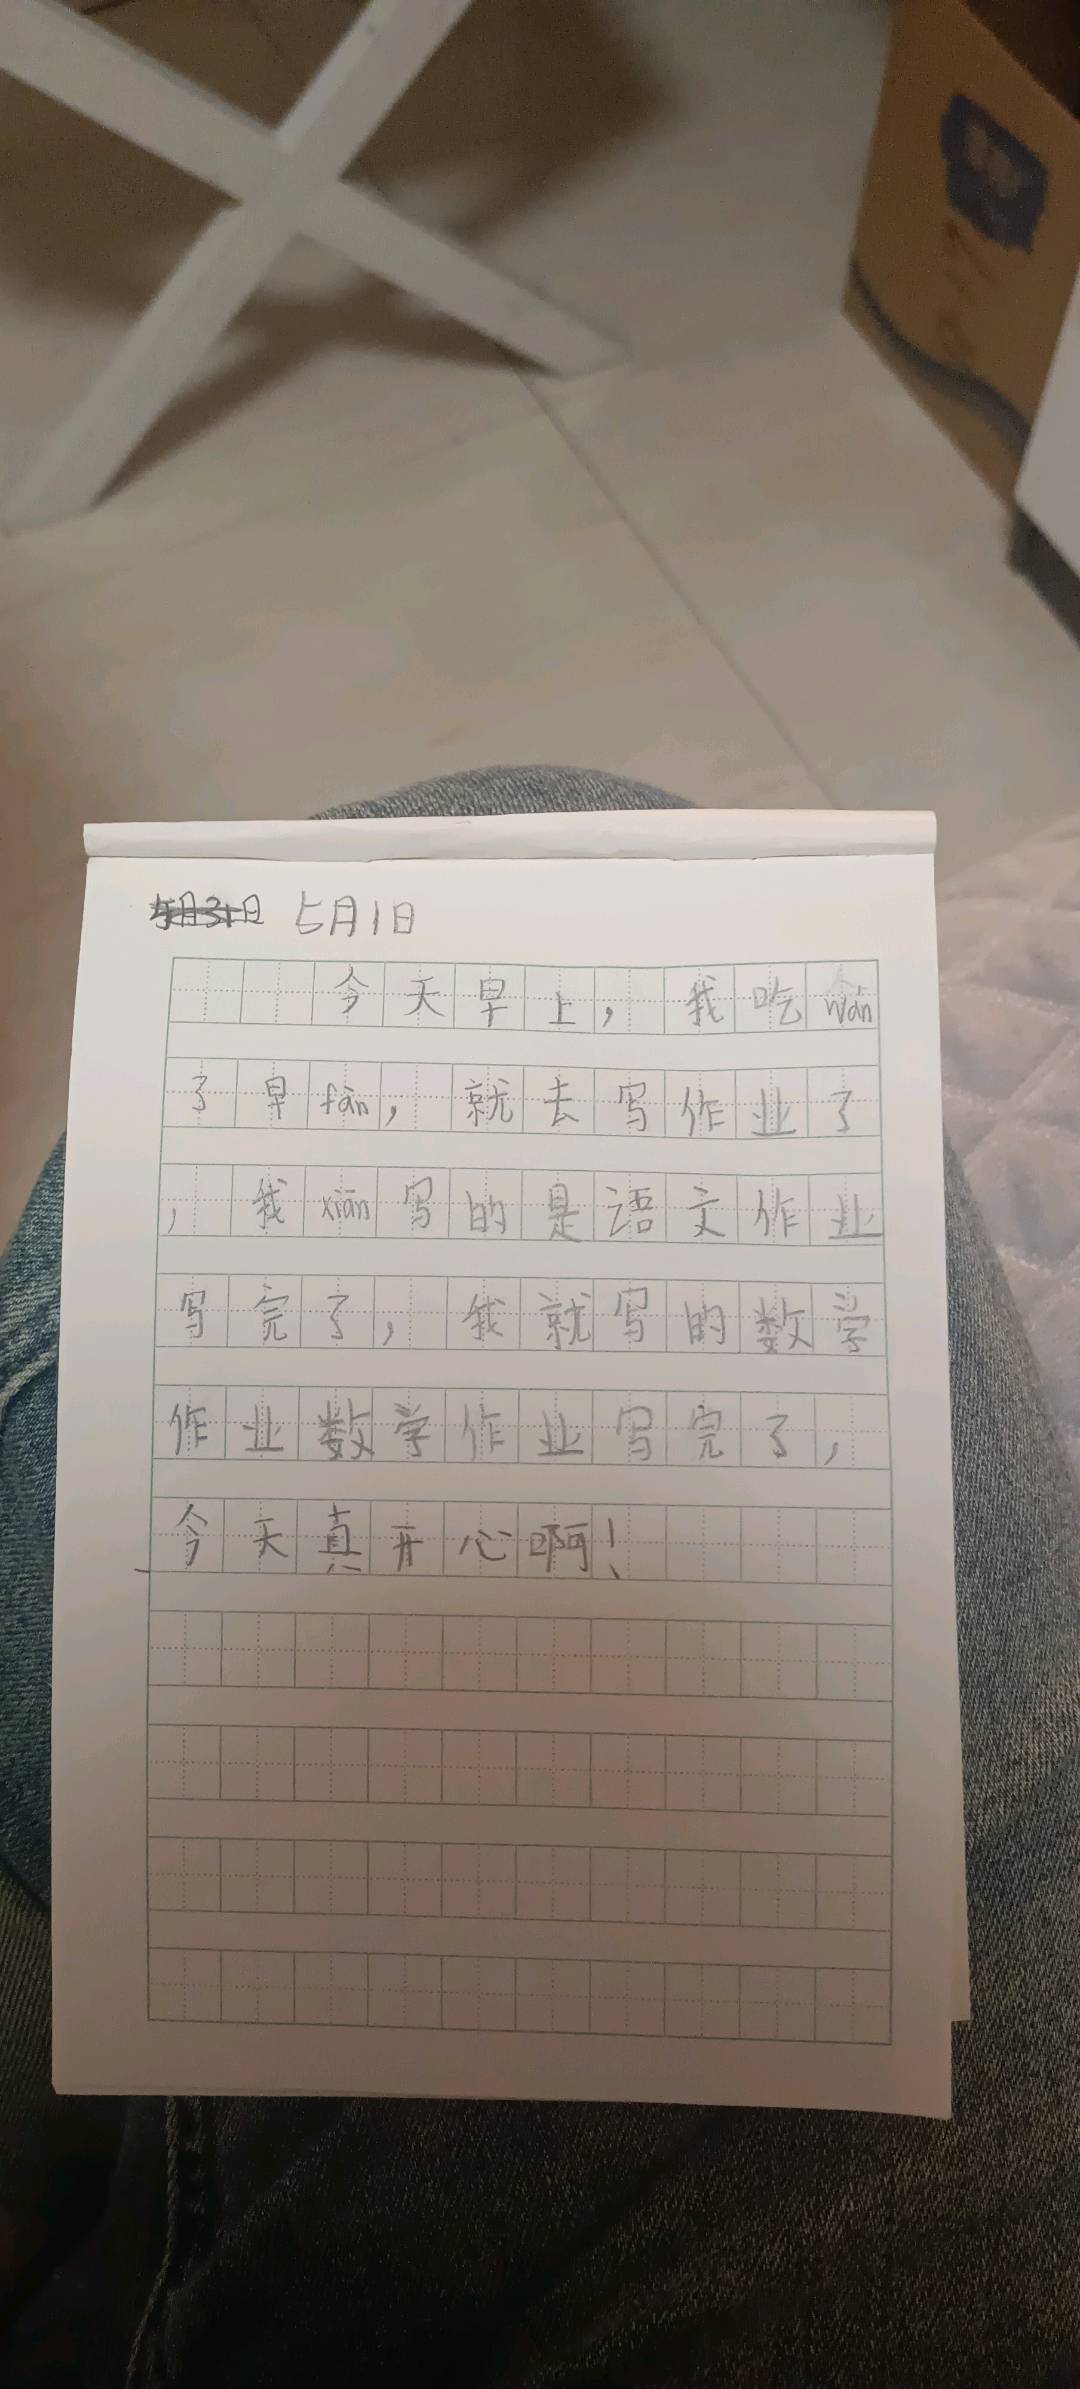 5月31日 5月1日
今天早上，我吃wán
了早fàn，就去写作业了
，我xiān写的是语文作业
写完了，我就写的数学
作业数学作业写完了，
今天真开心啊！